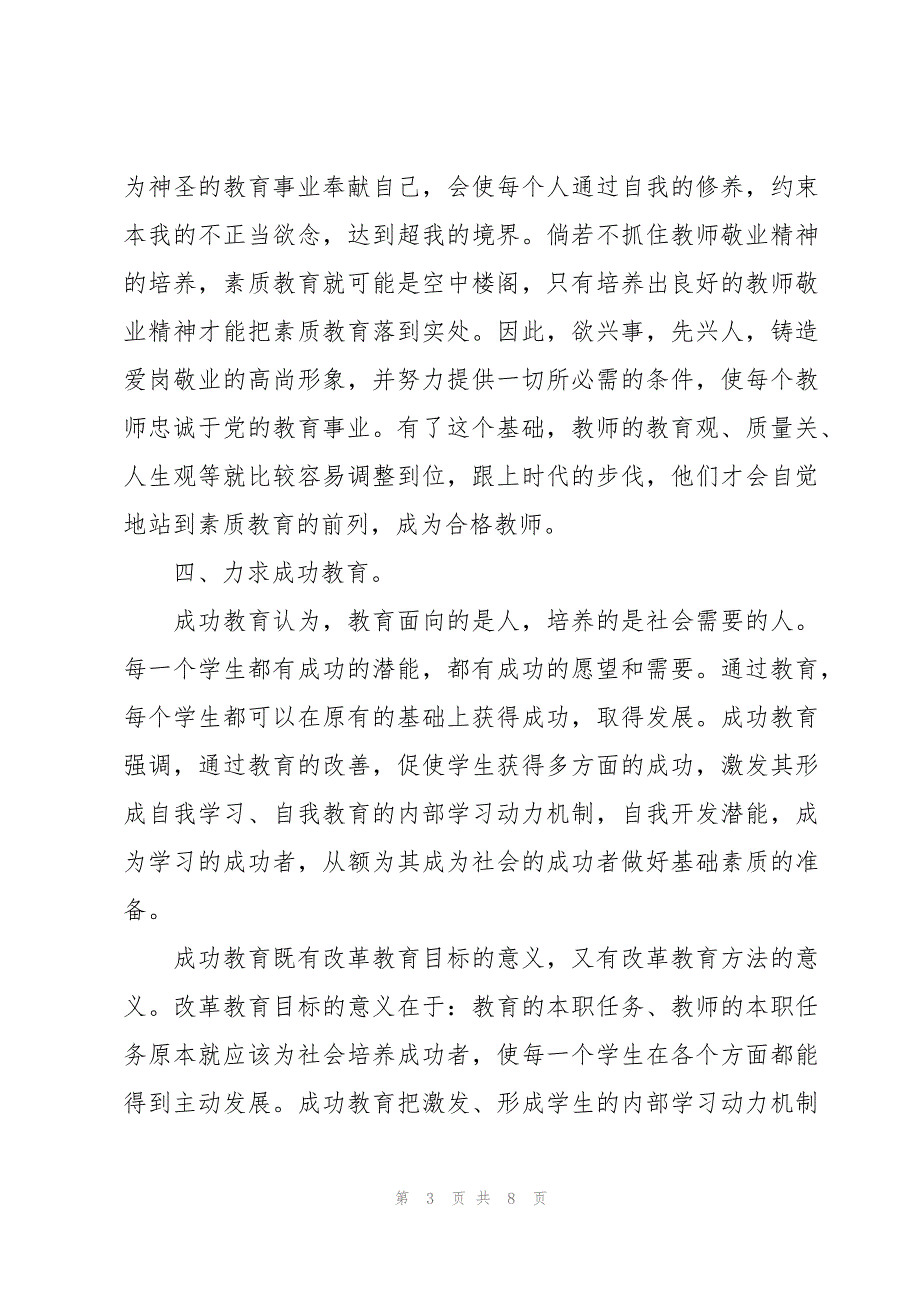 为神圣的教育事业奉献自己，会使每个人通过自我的修养，约束
本我的不正当欲念，达到超我的境界。倘若不抓住教师敬业精神
的培养，素质教育就可能是空中楼阁，只有培养出良好的教师敬
业精神才能把素质教育落到实处。因此，欲兴事，先兴人，铸造
爱岗敬业的高尚形象，并努力提供一切所必需的条件，使每个教
师忠诚于党的教育事业。有了这个基础，教师的教育观、质量关、
人生观等就比较容易调整到位，跟上时代的步伐，他们才会自觉
地站到素质教育的前列，成为合格教师。
四、力求成功教育。
成功教育认为，教育面向的是人，培养的是社会需要的人。
每一个学生都有成功的潜能，都有成功的愿望和需要。通过教育，
每个学生都可以在原有的基础上获得成功，取得发展。成功教育
强调，通过教育的改善，促使学生获得多方面的成功，激发其形
成自我学习、自我教育的内部学习动力机制，自我开发潜能，成
为学习的成功者，从额为其成为社会的成功者做好基础素质的准
备。
成功教育既有改革教育目标的意义，又有改革教育方法的意
义。改革教育目标的意义在于：教育的本职任务、教师的本职任
务原本就应该为社会培养成功者，使每一个学生在各个方面都能
得到主动发展。成功教育把激发、形成学生的内部学习动力机制
第 3 页 共 8 页